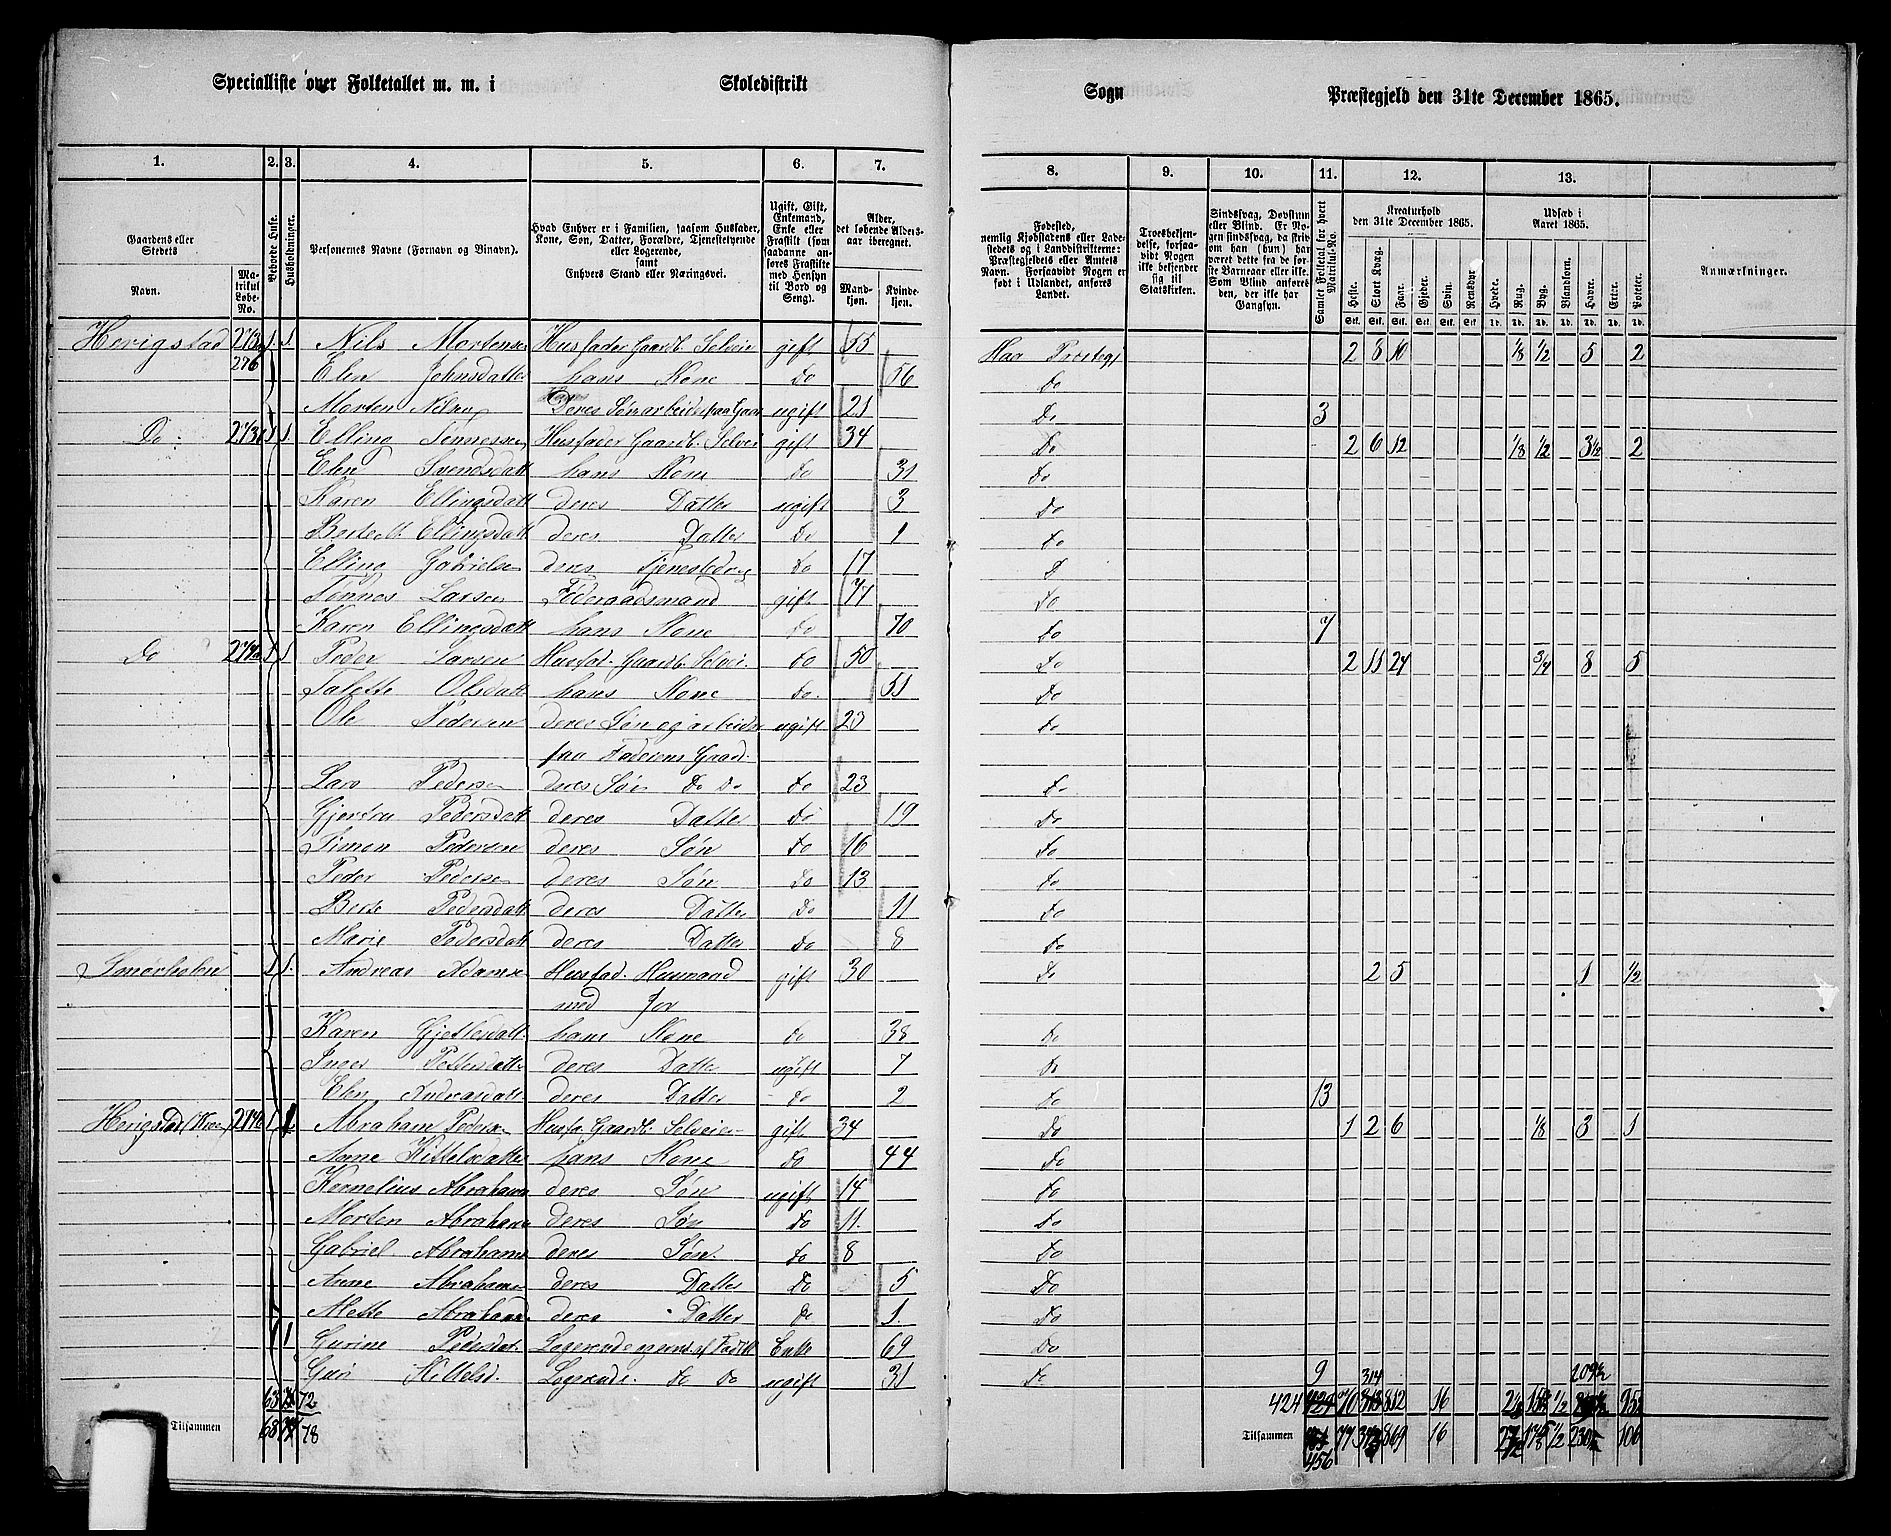 Specialliste over Folketallet m. m. i Skoledistrikt Sogn Præstegjeld den 31te December 1865.
1. 2. 3. 4. 5. 6. 7. 8. 9. 10. 11. 12. 13.
Gaardens eller Stedets Navn. Matrikul Løbe-No. Beboede Huse. Husholdninger. Personernes Navne (Fornavn og Binavn).
Hvad Enhver er i Familien, saasom Husfader, Kone, Søn, Datter, Forældre, Tjenestetyende eller Logerende, samt Enhvers Stand eller Næringsvei.
Ugift, Gift, Enkemand, Enke eller Fraskilt (som saadanne anføres Fraskilte med Hensyn til Bord og Seng).
Alder, det løbende Aldersaar iberegnet. Mandkjøn. Kvindekjøn.
Fødested, nemlig Kjøbstadens eller Ladestedets og i Landdistrikterne: Præstegjeldets eller Amtets Navn. Forsaavidt Nogen er født i Udlandet, anføres Landet.
Troesbekjendelse, forsaavidt Nogen ikke bekjender sig til Statskirken.
Sindssvag, Døvstum eller Blind. Er Nogen sindssvag, da skrives om han (hun) har været dette fra de første Barneaar eller ikke. Som Blind anføres den, der ikke har Gangsyn.
Samlet Folketal for hvert Matrikul-No.
Kreaturhold den 31te December 1865. Heste. Stort Kvæg. Faar. Gjeder. Svin. Rensdyr
Udsæd i Aaret 1865. Hvede. Rug. Byg. Blandkorn. Havre. Erter. Poteter.
Anmærkninger.
Herigstad 1 1 Nils Mortensen Husfader Gaardb. Selveier gift 55 Haa Præstegj 2 8 10 1/8 1/2 5 2
276 Elen Johnsdatter hans Kone Do 56 Do
Morten Nilsen Deres Søn arbeider paa Gaar ugift 21 Do 3
Do 1 1 Elling Tønnessen Husfader Gaardb. Selvei gift 34 Do 2 6 12 1/8 1/2 3 1/2 2
Elen Svendsdatt hans Kone Do 31 Do
Karen Ellingsdatt deres Datter ugift 3 Do
Ellingsdatt deres Datter Do 1 Do
Elling Gabrielsen deres Do 17 D
Tønnes Larsen Føderaadsmand gift 77 Do
Karen Ellingsdatt hans Kone Do 70 Do 7
Do 1 1 Peder Larsen Husfad. Gaardb. Selvei. Do 50 Do 2 11 24 3/4 8 5
Olsdatt hans Kone Do. 51 Do
Ole Pedersen deres Søn og arbeider ugift 23 Do
paa Faderens Gaard.
Lars Pedersen deres Søn Do Do Do 23 Do
Pedersdatt deres Datter Do 19 Do
Simon Pedersen deres Søn Do 16 Do
Peder Pedersen deres Søn Do 13 Do
Berte Pedersdatt deres Datter Do 11 Do
Marie Pedersdatt deres Datter Do 8 Do
1 1. Andreas Husfad. Huusmand gift 30 Do 2 5 1 1/2
med Jor
Karen hans Kone Do 38 Do
Inger deres Datte ugift 7 Do
Elen Andreasdatt deres Datter Do 2 Do 13
1 1 Abraham Pedersen Husfa. Gaardb. Selveier gift 34 Do 1 2 6 1/8 3 1
Anne Kittelsdatter hans Kone Do 44 Do
Kornelius Abrahams deres Søn ugift 14 Do
Morten Abrahams deres Søn Do 11. Do
Gabriel Abrahams deres Søn. Do 8 Do
Anne Abrahams deres Datter Do 5 Do
Mette Abrahamsd. deres Datter Do 1. Do
1 1 Gurine Pedersdat. Logerende Enke 69 Do
Guri Kittelsd. Logerende Do Do ugift 31 Do 9
72 424 16
Tilsammen 78 Tilsammen 77 869 16 106
456